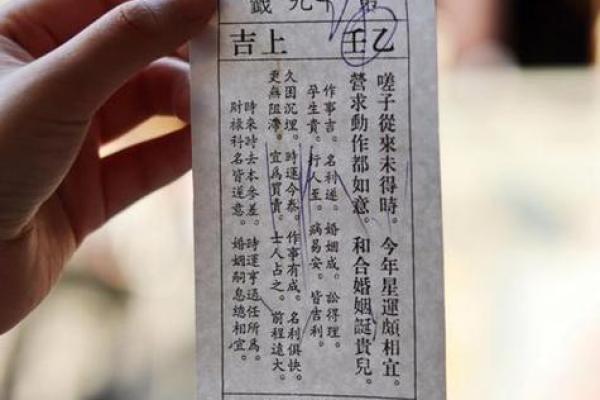 第十九籤
乙壬　上吉
嗟子從來未得時。今年星運頗相宜。
營求動作都如意。和合婚姻誕貴兒。
作事吉。名利遂。婚姻成。訟得理。
孕生貴。行人至。病易安。皆吉利。
久困沉埋。時運今泰。作事有成。名利俱快。
更無阻滯。宜爲買賣。士人占之。前程遠大。
時來時去本參差。時運亨通任所爲。
財祿科名皆遂意。婚姻嗣息總相宜。